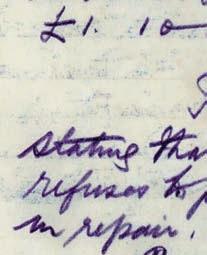 £1. 10
stating tha
refuses to p
in repair.